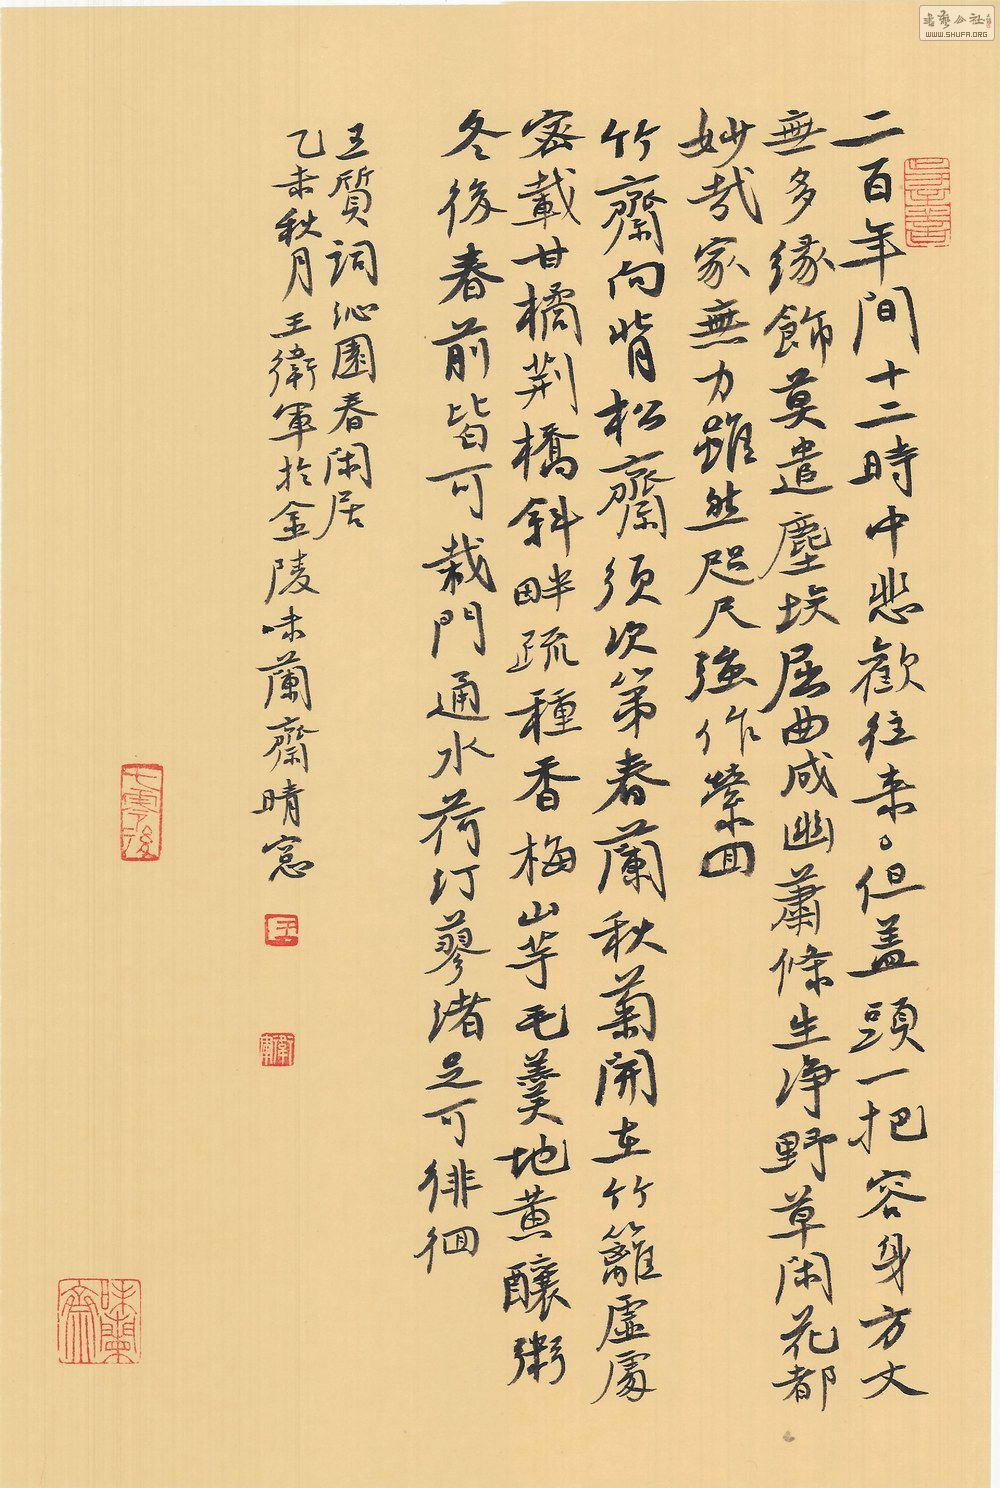 二百年間十二時中悲歡往來。但蓋頭一把容身方丈
無多緣飾莫遣塵埃屈曲成幽蕭條生淨野草閑花都
妙哉家無力雖然咫尺強作縈回
竹齋向背松齋須次第春蘭秋菊開在竹籬虛處
密栽甘橘荊橋斜畔疏種香梅山芋毛羹地黄釀粥
冬後春前皆可栽門通水荷汀蓼渚足可徘徊
王質詞沁園春閑居
乙未秋月王衛軍於金陵味蘭齋晴窓
味蘭齋
書藝公社
WWW.SHUFA.ORG